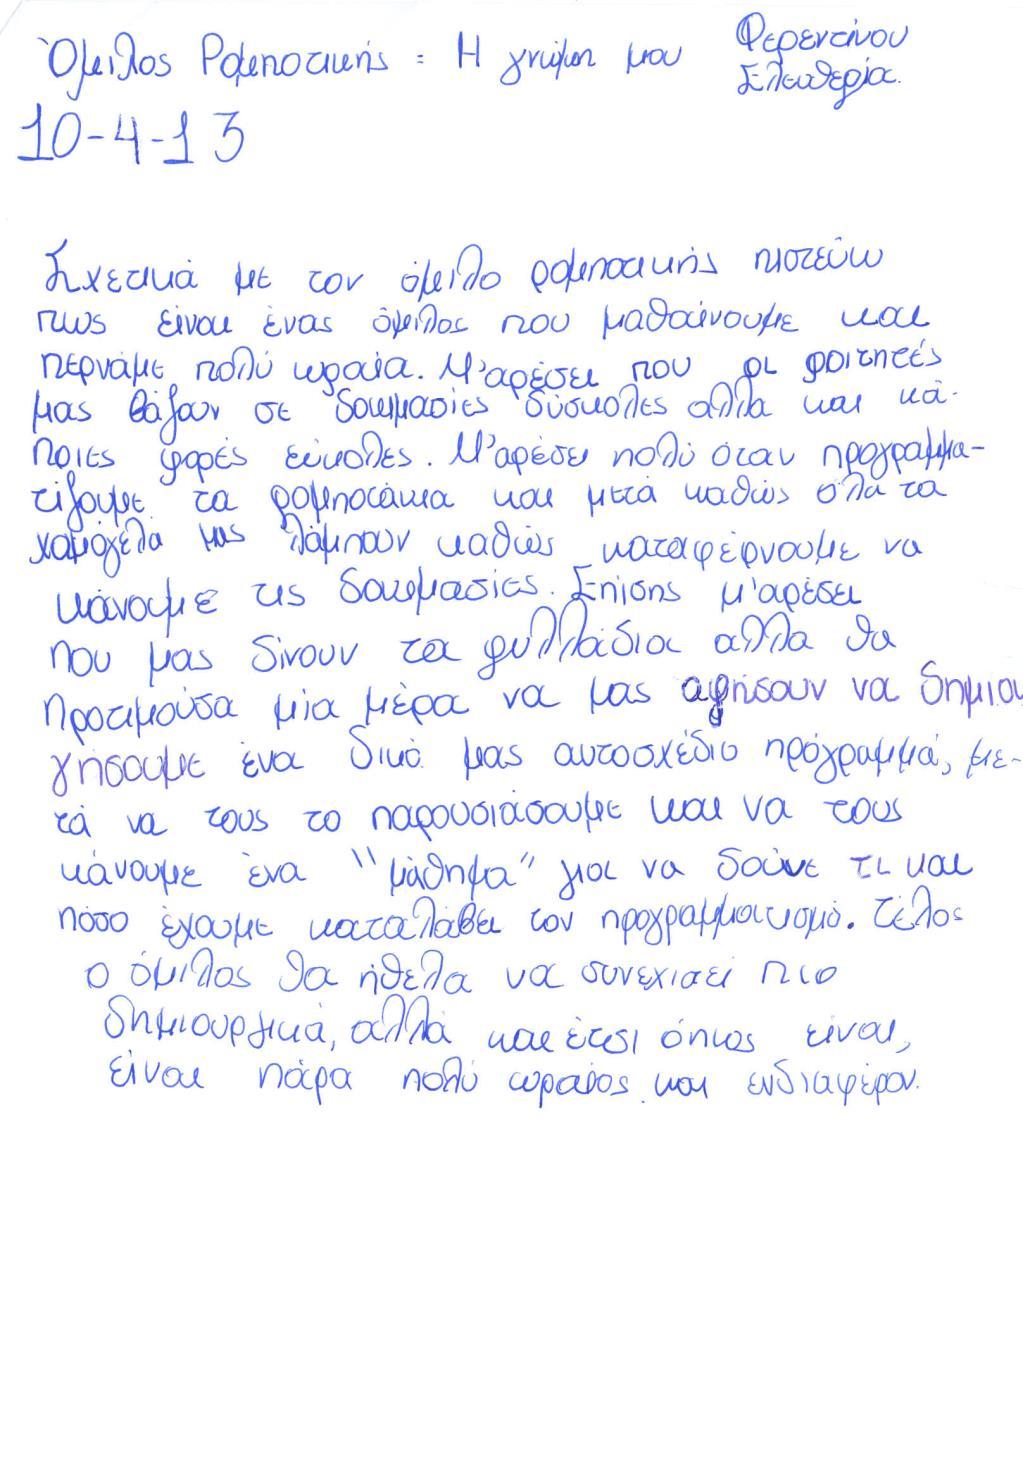 Όμιλος Ρομποτικής : Η γνώμη μου
Φερεντίνου
Ελευθερία.
10-4-13
Σχετικά με τον όμιλο ρομποτικής πιστεύω
πως είναι ένας όμιλος που μαθαίνουμε και
περνάμε πολύ ωραία. Μ'αρέσει που οι φοιτητές
μας βάζουν σε δοκιμασίες δύσκολες αλλά και κά-
ποιες φορές εύκολες. Μ'αρέσει πολύ όταν προγραμμα-
τίζουμε τα ρομποτάκια και μετά καθώς όλα τα
χαμόγελά μας λάμπουν καθώς καταφέρνουμε να
κάνουμε τις δοκιμασίες. Επίσης μ'αρέσει
που μας δίνουν τα φυλλάδια αλλα θα
προτιμούσα μία μέρα να μας αφήσουν να δημιου
γήσουμε ένα δικό μας αυτοσχέδιο πρόγραμμά, με-
τά να τους το παρουσιάσουμε και να τους
κάνουμε ένα "μάθημα" για να δούνε τι και
πόσο έχουμε καταλάβει τον προγραμματισμό. Τέλος
ο όμιλος θα ήθελα να συνεχισεί πιο
δημιουργικά, αλλά και έτσι όπως είναι,
είναι πάρα πολύ ωραίος και ενδιαφέρον.